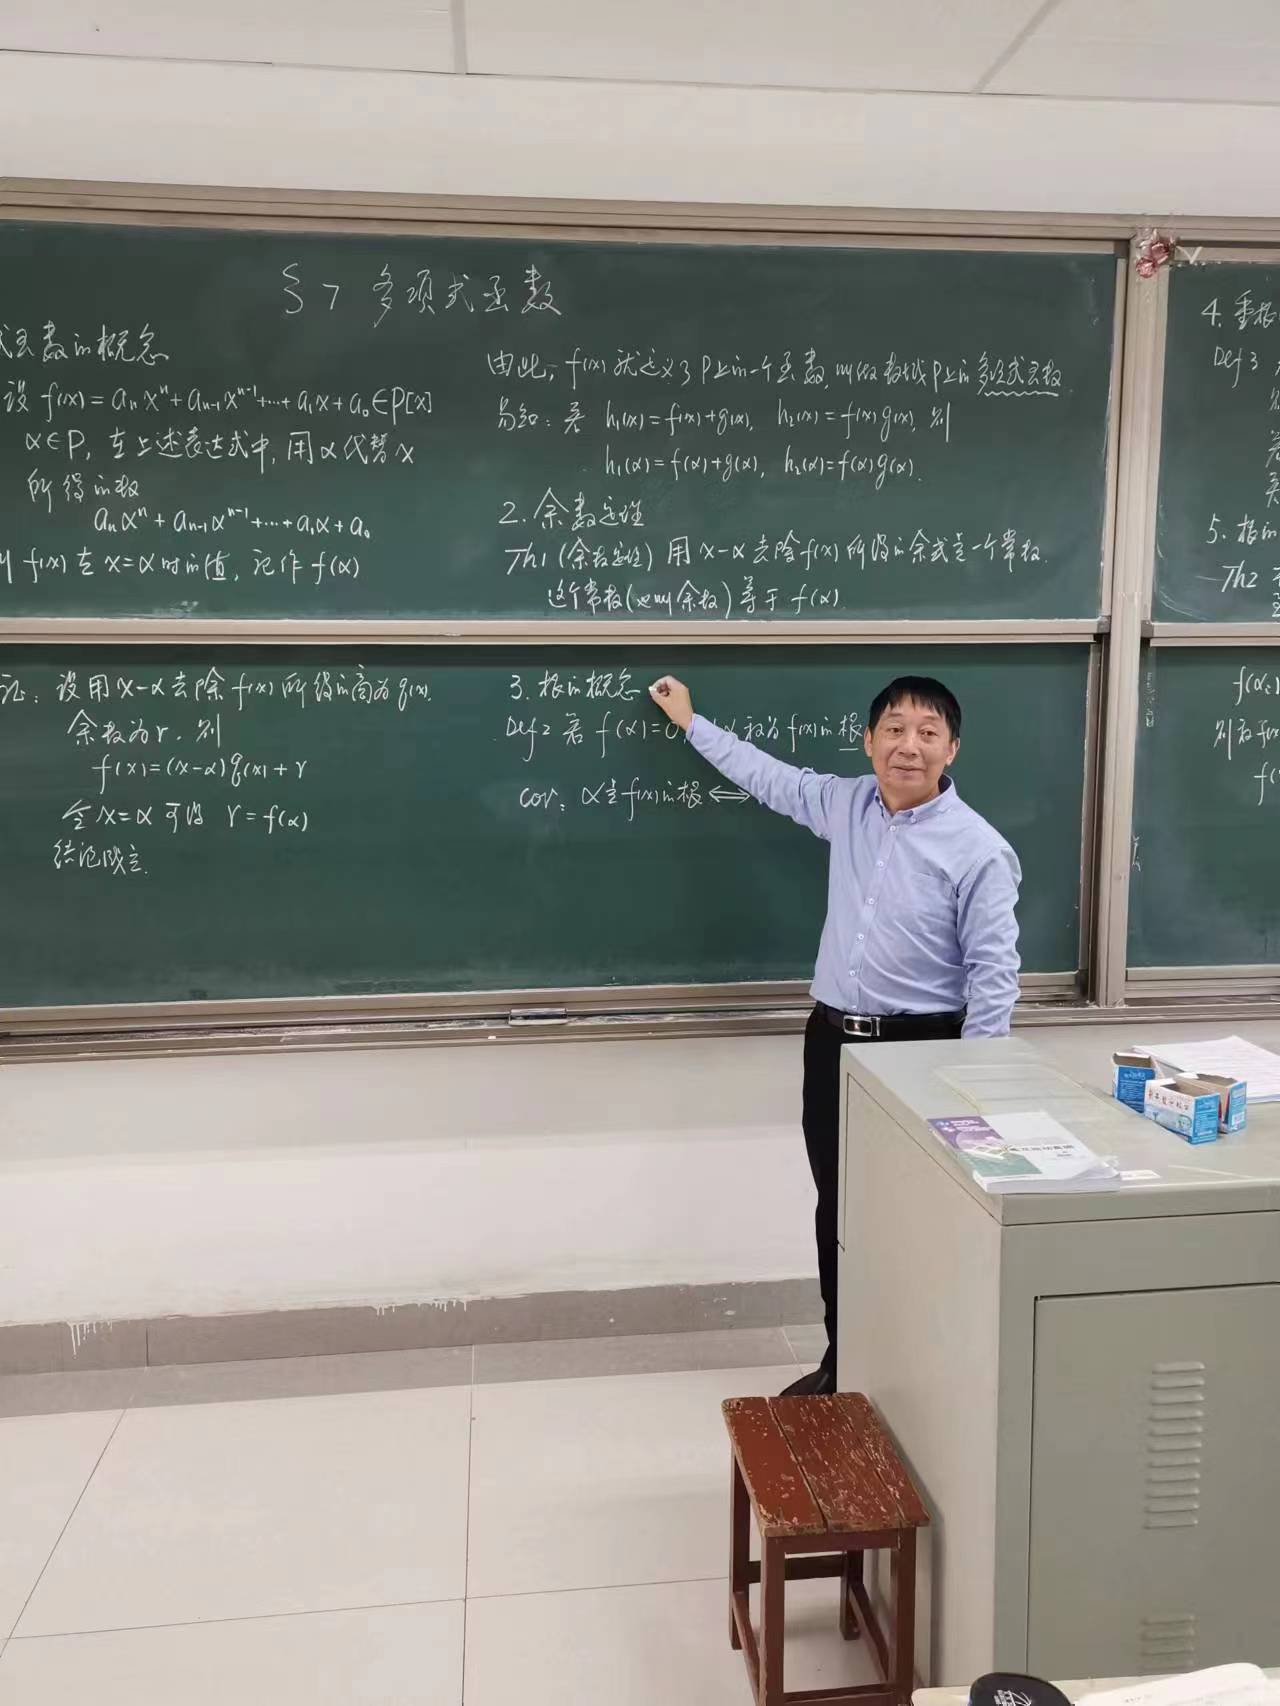 §7 多项式函数
式函数的概念
设 f(x)=aₙxⁿ+aₙ₋₁xⁿ⁻¹+…+a₁x+a₀∈P[x]
α∈P, 在上述表达式中, 用α代替x
所得的数
aₙαⁿ+aₙ₋₁αⁿ⁻¹+…+a₁α+a₀
f(x)在x=α时的值, 记作 f(α)
由此, f(x)就定义了P上的一个函数, 叫做数域P上的多项式函数.
易知: 若 h₁(x)=f(x)+g(x), h₂(x)=f(x)g(x), 则
h₁(α)=f(α)+g(α), h₂(α)=f(α)g(α).
2. 余数定理
Th1 (余数定理) 用x-α去除f(x)所得的余式是一个常数,
这个常数(也叫余数)等于 f(α).
证: 设用x-α去除f(x)所得的商为q(x),
余数为r, 则
f(x)=(x-α)q(x)+r
令x=α可得 r=f(α)
结论成立.
3. 根的概念
Def2 若 f(α)=0, α称为f(x)的根
cor: α是f(x)的根⟺
4. 重根
Def3
5. 根的
Th2
f(α₂)
则称f(x)